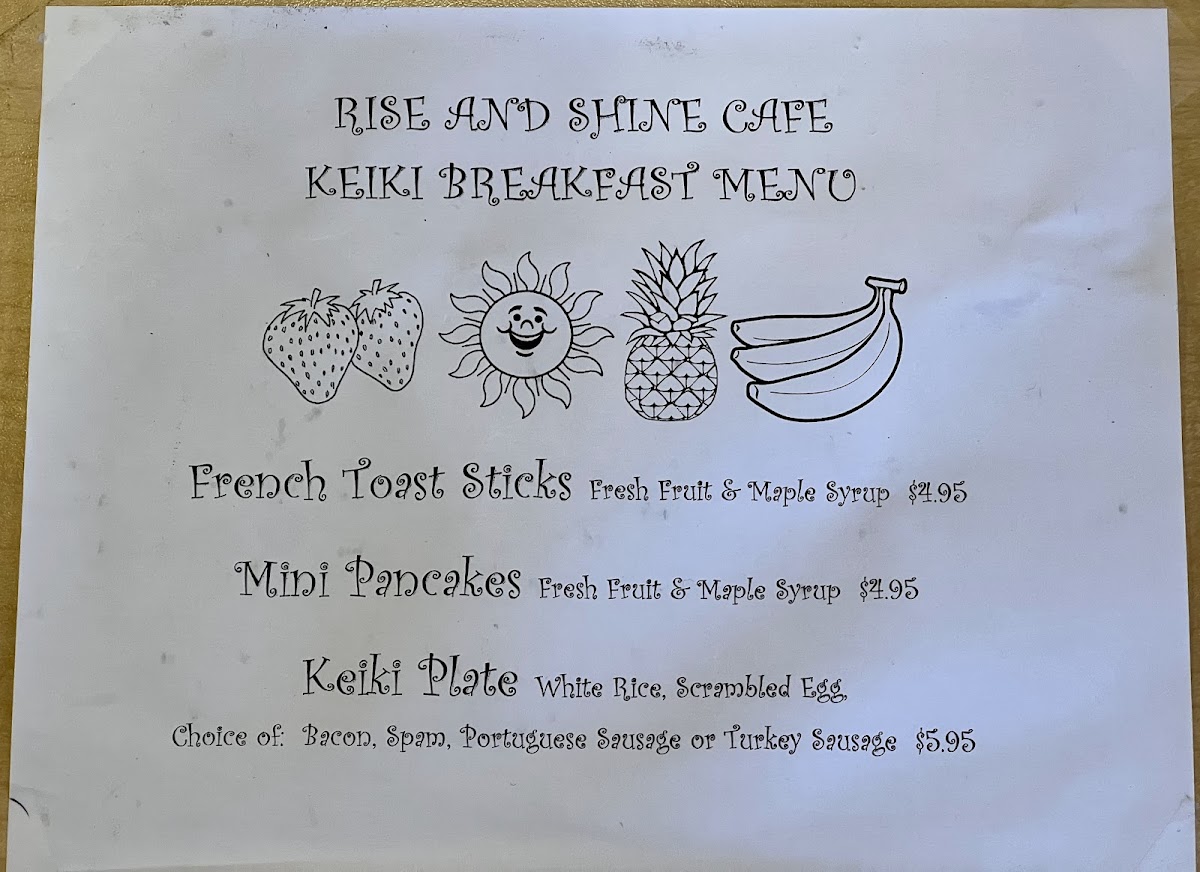 RISE AND SHINE CAFE
KEIKI BREAKFAST MENU
French Toast Sticks Fresh Fruit & Maple Syrup $4.95
Mini Pancakes Fresh Fruit & Maple Syrup $4.95
Keiki Plate White Rice, Scrambled Egg,
Choice of: Bacon, Spam, Portuguese Sausage or Turkey Sausage $5.95